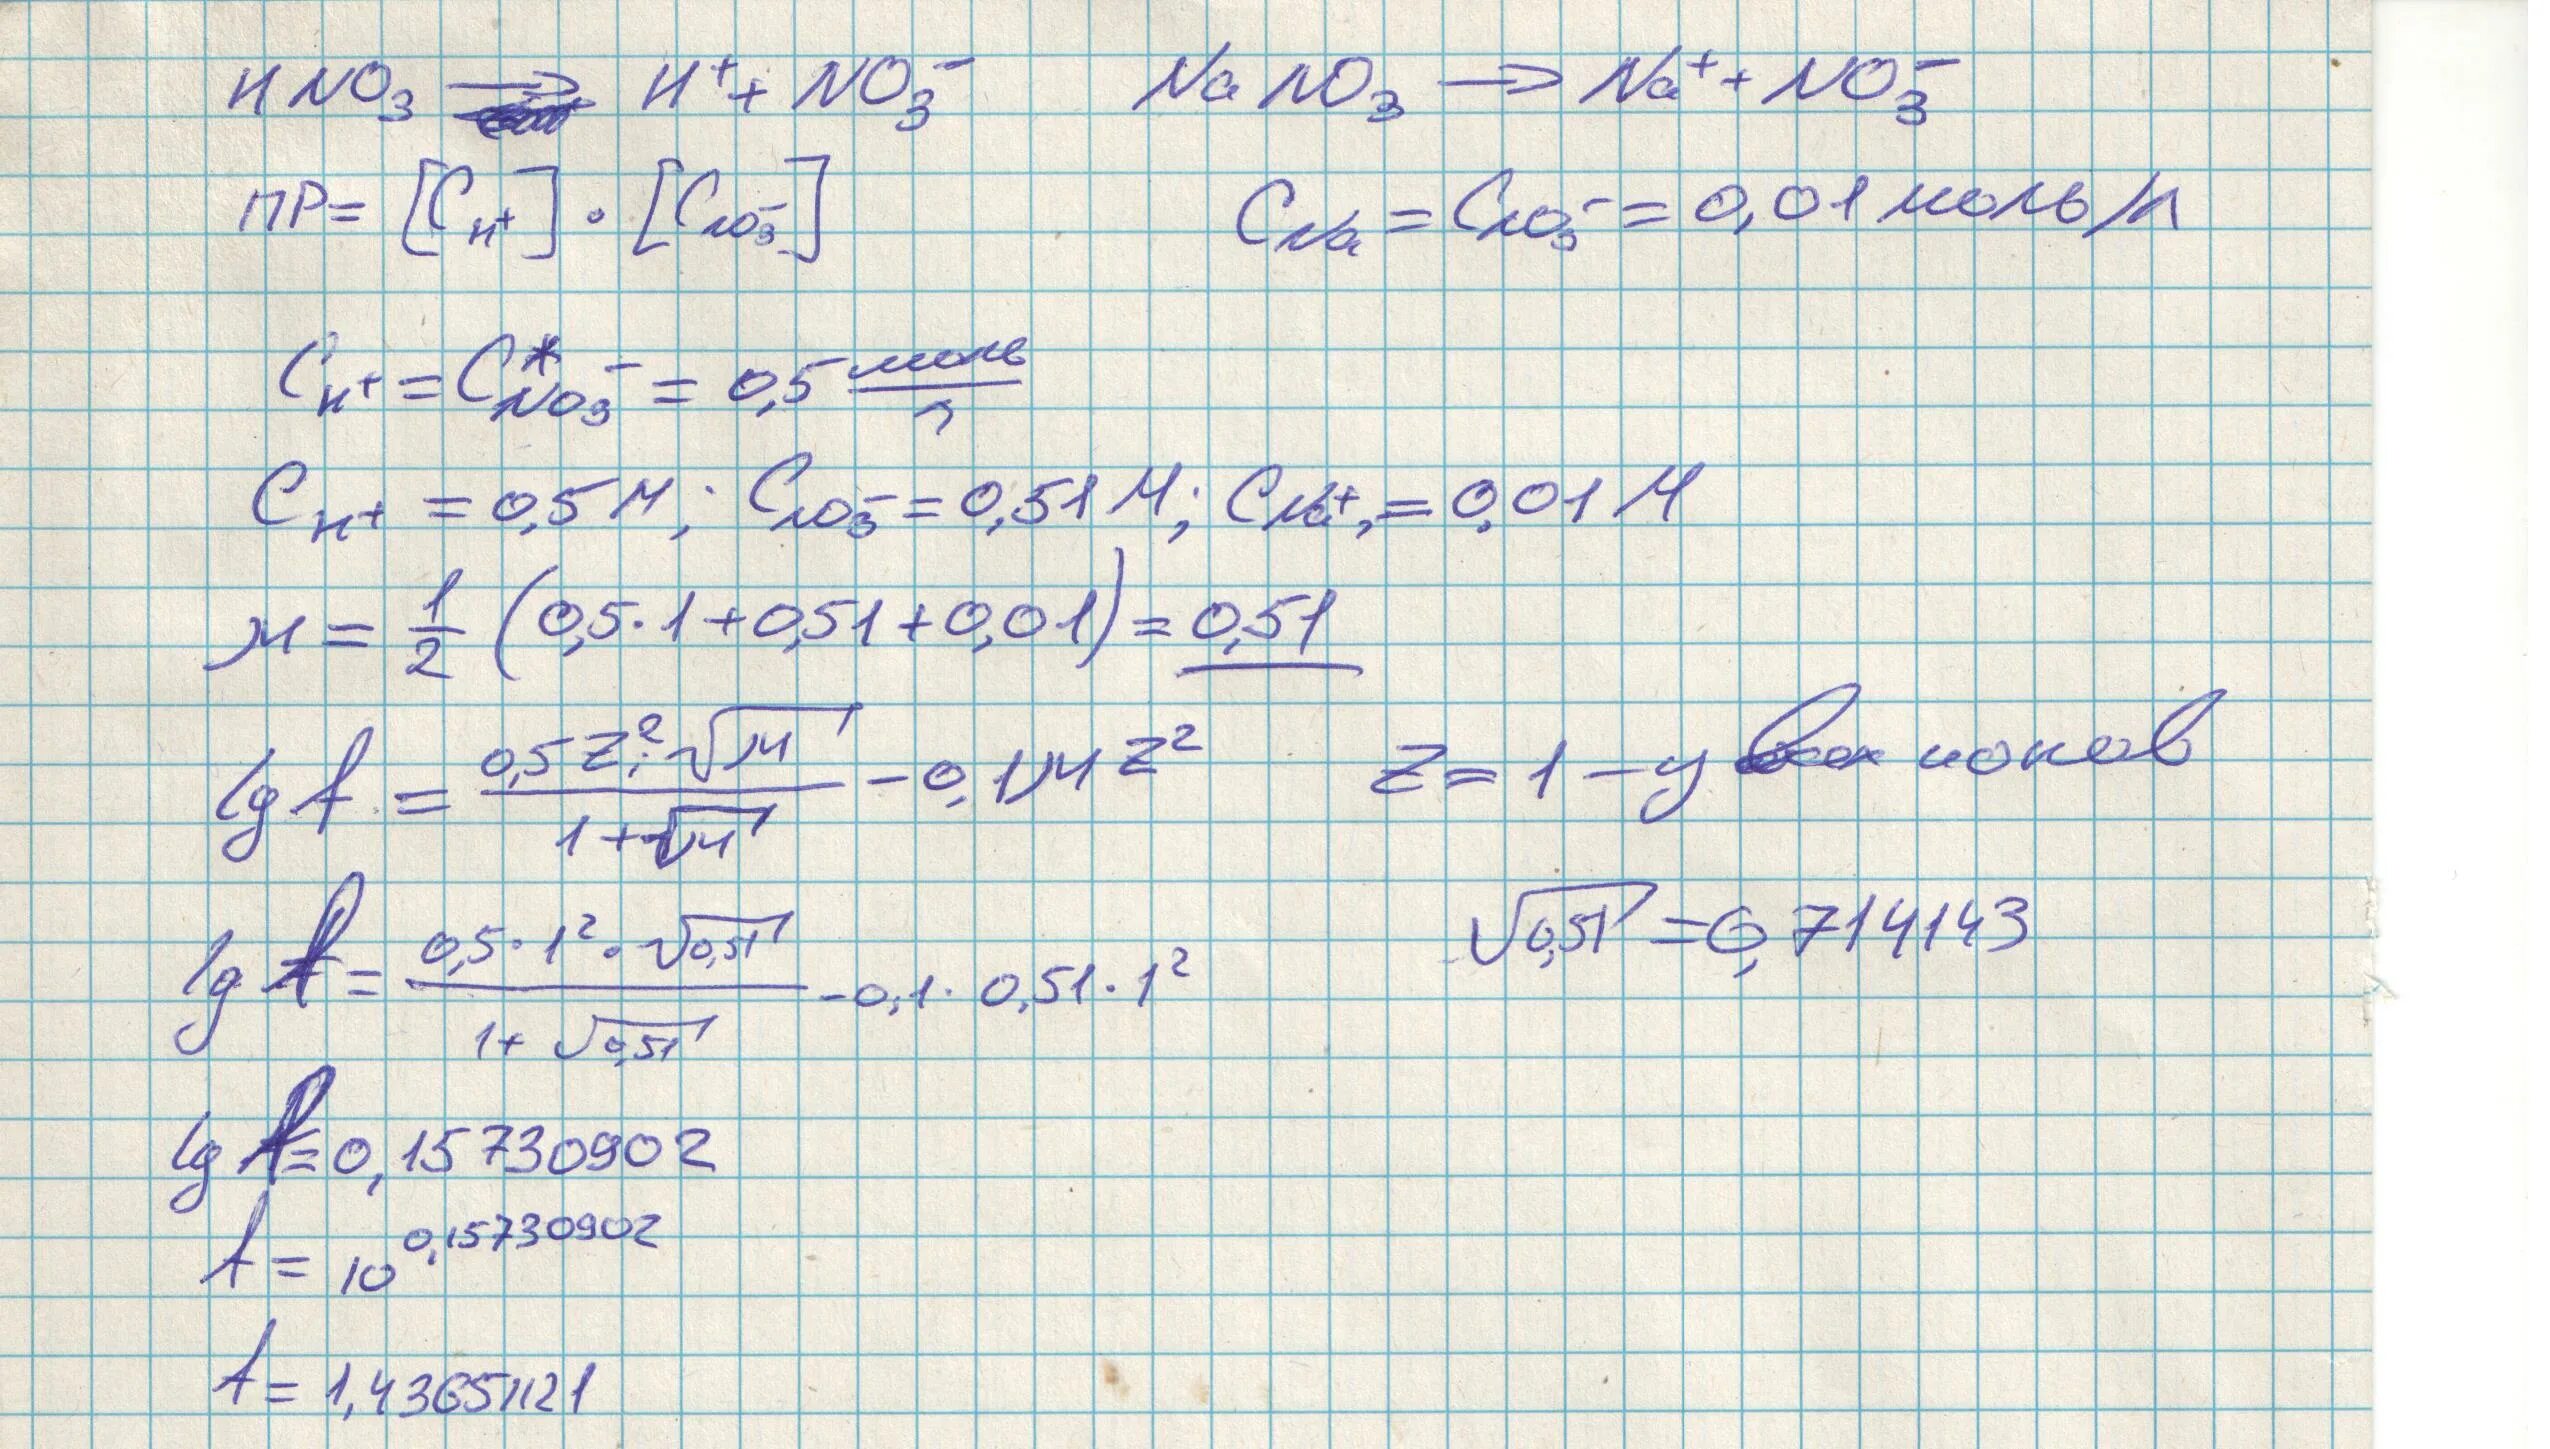 HNO₃ → H⁺ + NO₃⁻     NaNO₃ → Na⁺ + NO₃⁻
ПР = [C_H⁺] · [C_NO₃⁻]     C_Na = C_NO₃⁻ = 0,01 моль/л
C_H⁺ = C*_NO₃⁻ = 0,5 моль/л
C_H⁺ = 0,5 М; C_NO₃⁻ = 0,51 М; C_Na⁺ = 0,01 М
μ = 1/2 (0,5·1 + 0,51 + 0,01) = 0,51
lg f = 0,5 Z²·√μ / (1 + √μ) - 0,1μ Z²     Z = 1 - у всех ионов
lg f = 0,5 · 1² · √0,51 / (1 + √0,51) - 0,1 · 0,51 · 1²     √0,51 = 0,714143
lg f = 0,15730902
f = 10^0,15730902
f = 1,43651121